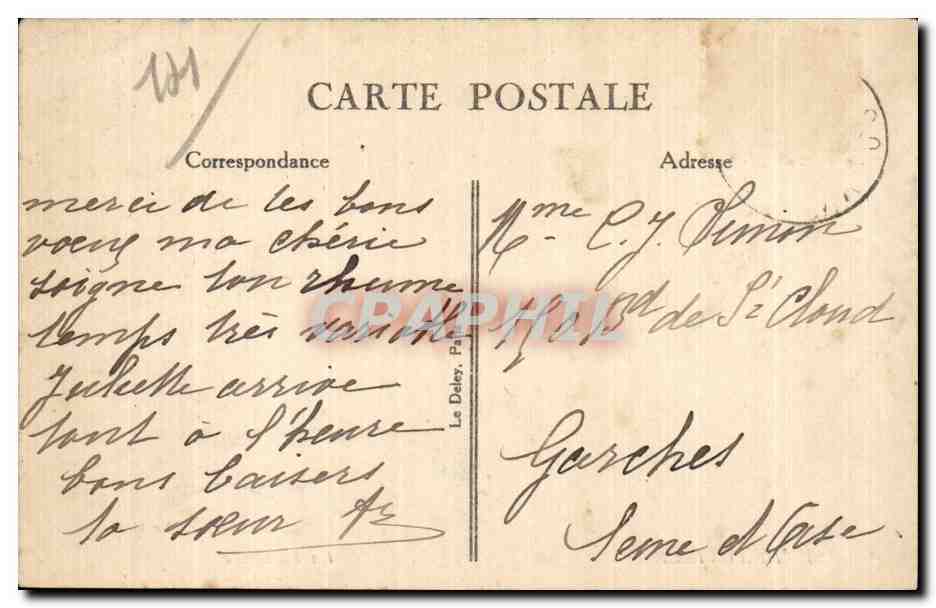 121
CARTE POSTALE
Correspondance
merci de tes bons
voeux ma chérie
soigne ton rhume
temps très variable
Juliette arrive
tout à l'heure
bons baisers
ta sœur
Le Deley, Pa
Adresse
Mme C. J. Simon
Bard de St Cloud
Garches
Seine et Oise
CPAPHIL